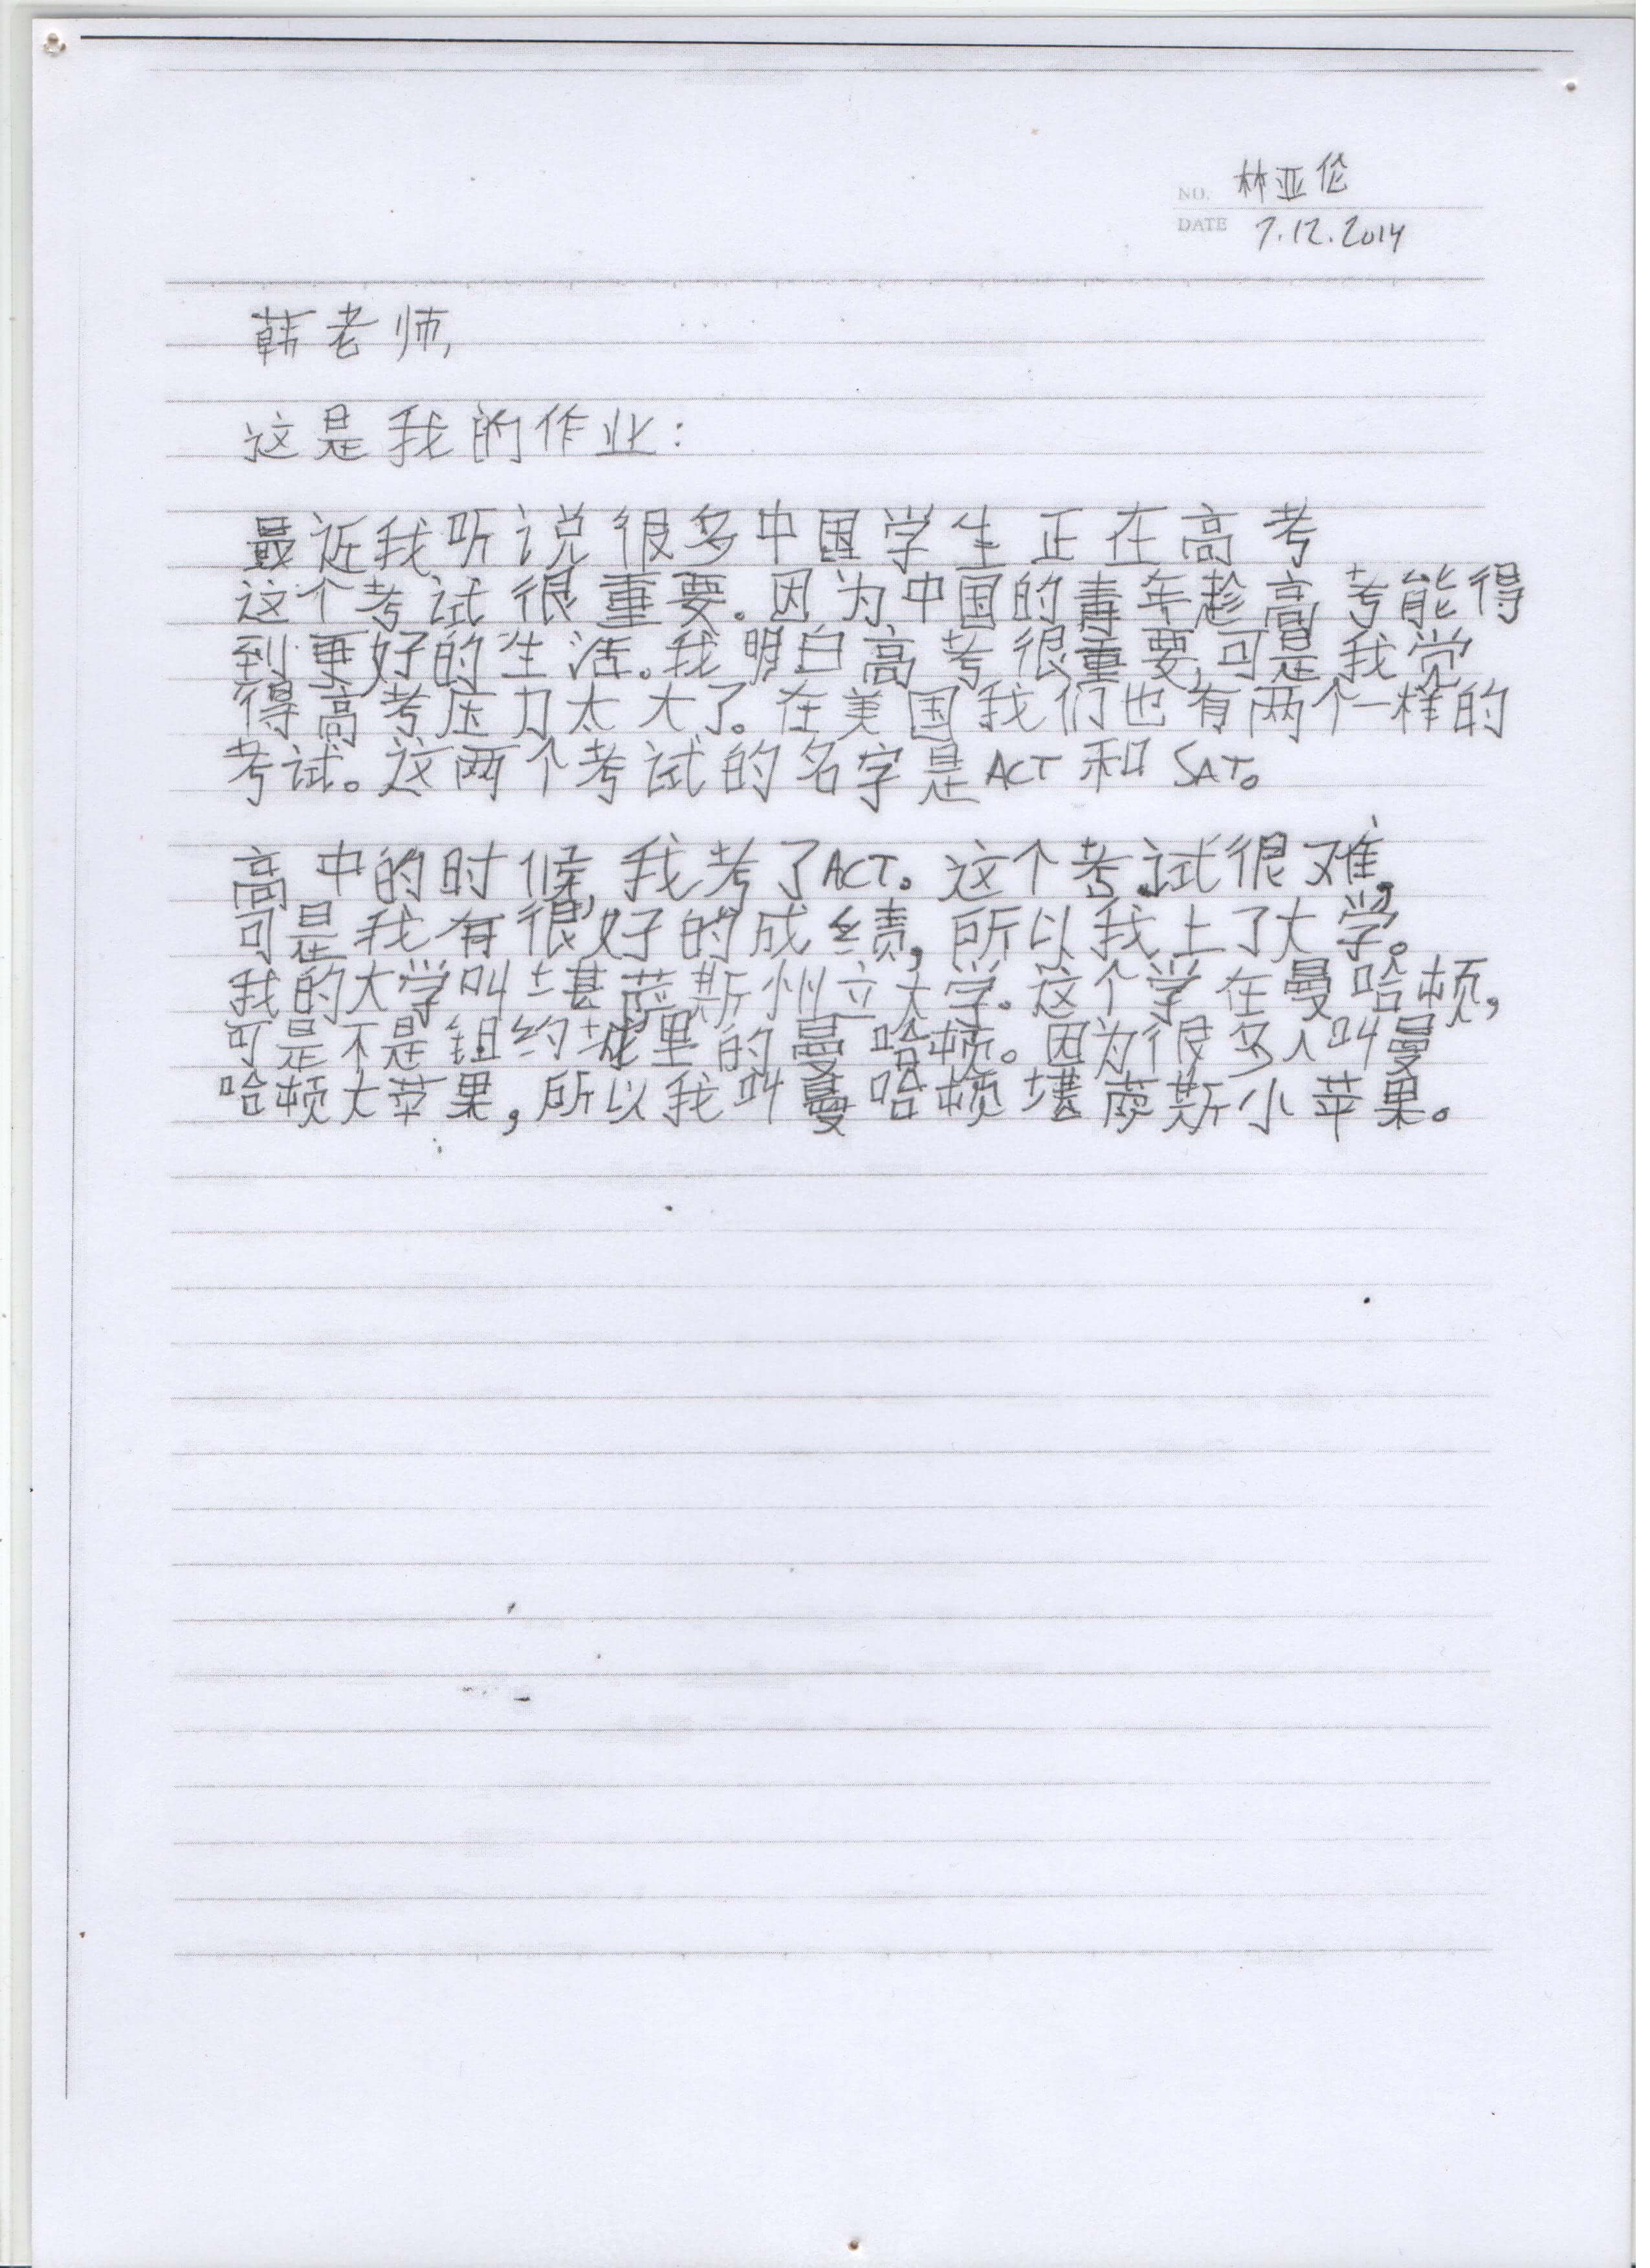 NO. 林亚伦
DATE 7.12.2014
韩老师,
这是我的作业:
最近我听说很多中国学生正在高考
这个考试很重要。因为中国的青年趁高考能得
到更好的生活。我明白高考很重要,可是我觉
得高考压力太大了。在美国我们也有两个一样的
考试。这两个考试的名字是ACT和SAT。
高中的时候,我考了ACT。这个考试很难,
可是我有很好的成绩,所以我上了大学。
我的大学叫堪萨斯州立大学。这个学在曼哈顿,
可是不是钮约城里的曼哈顿。因为很多人叫曼
哈顿大苹果,所以我叫曼哈顿堪萨斯小苹果。